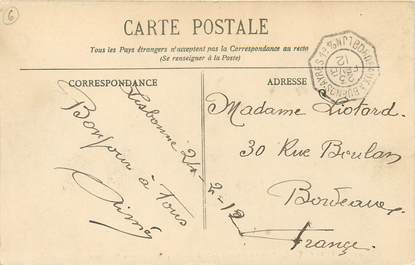 6
CARTE POSTALE
Tous les Pays étrangers n'acceptent pas la Correspondance au recto
(Se renseigner à la Poste)
CORRESPONDANCE
ADRESSE
Lisbonne 24-2-12
Bonjour à Tous
Aimé
Madame Liotard
30 Rue Beulan
Bordeaux
France
BORDEAUX À BUENOS-AYRES
23
FEVR
12